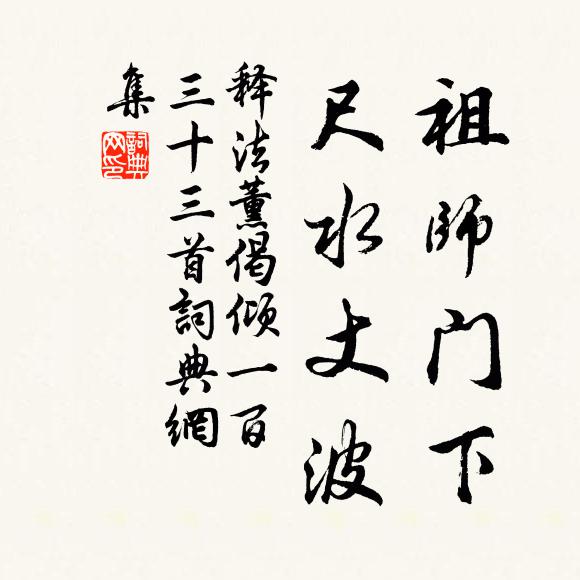 祖師门下
尺水丈波
释法薰偈倾一百
三十三首詞典網
集
詞典网印